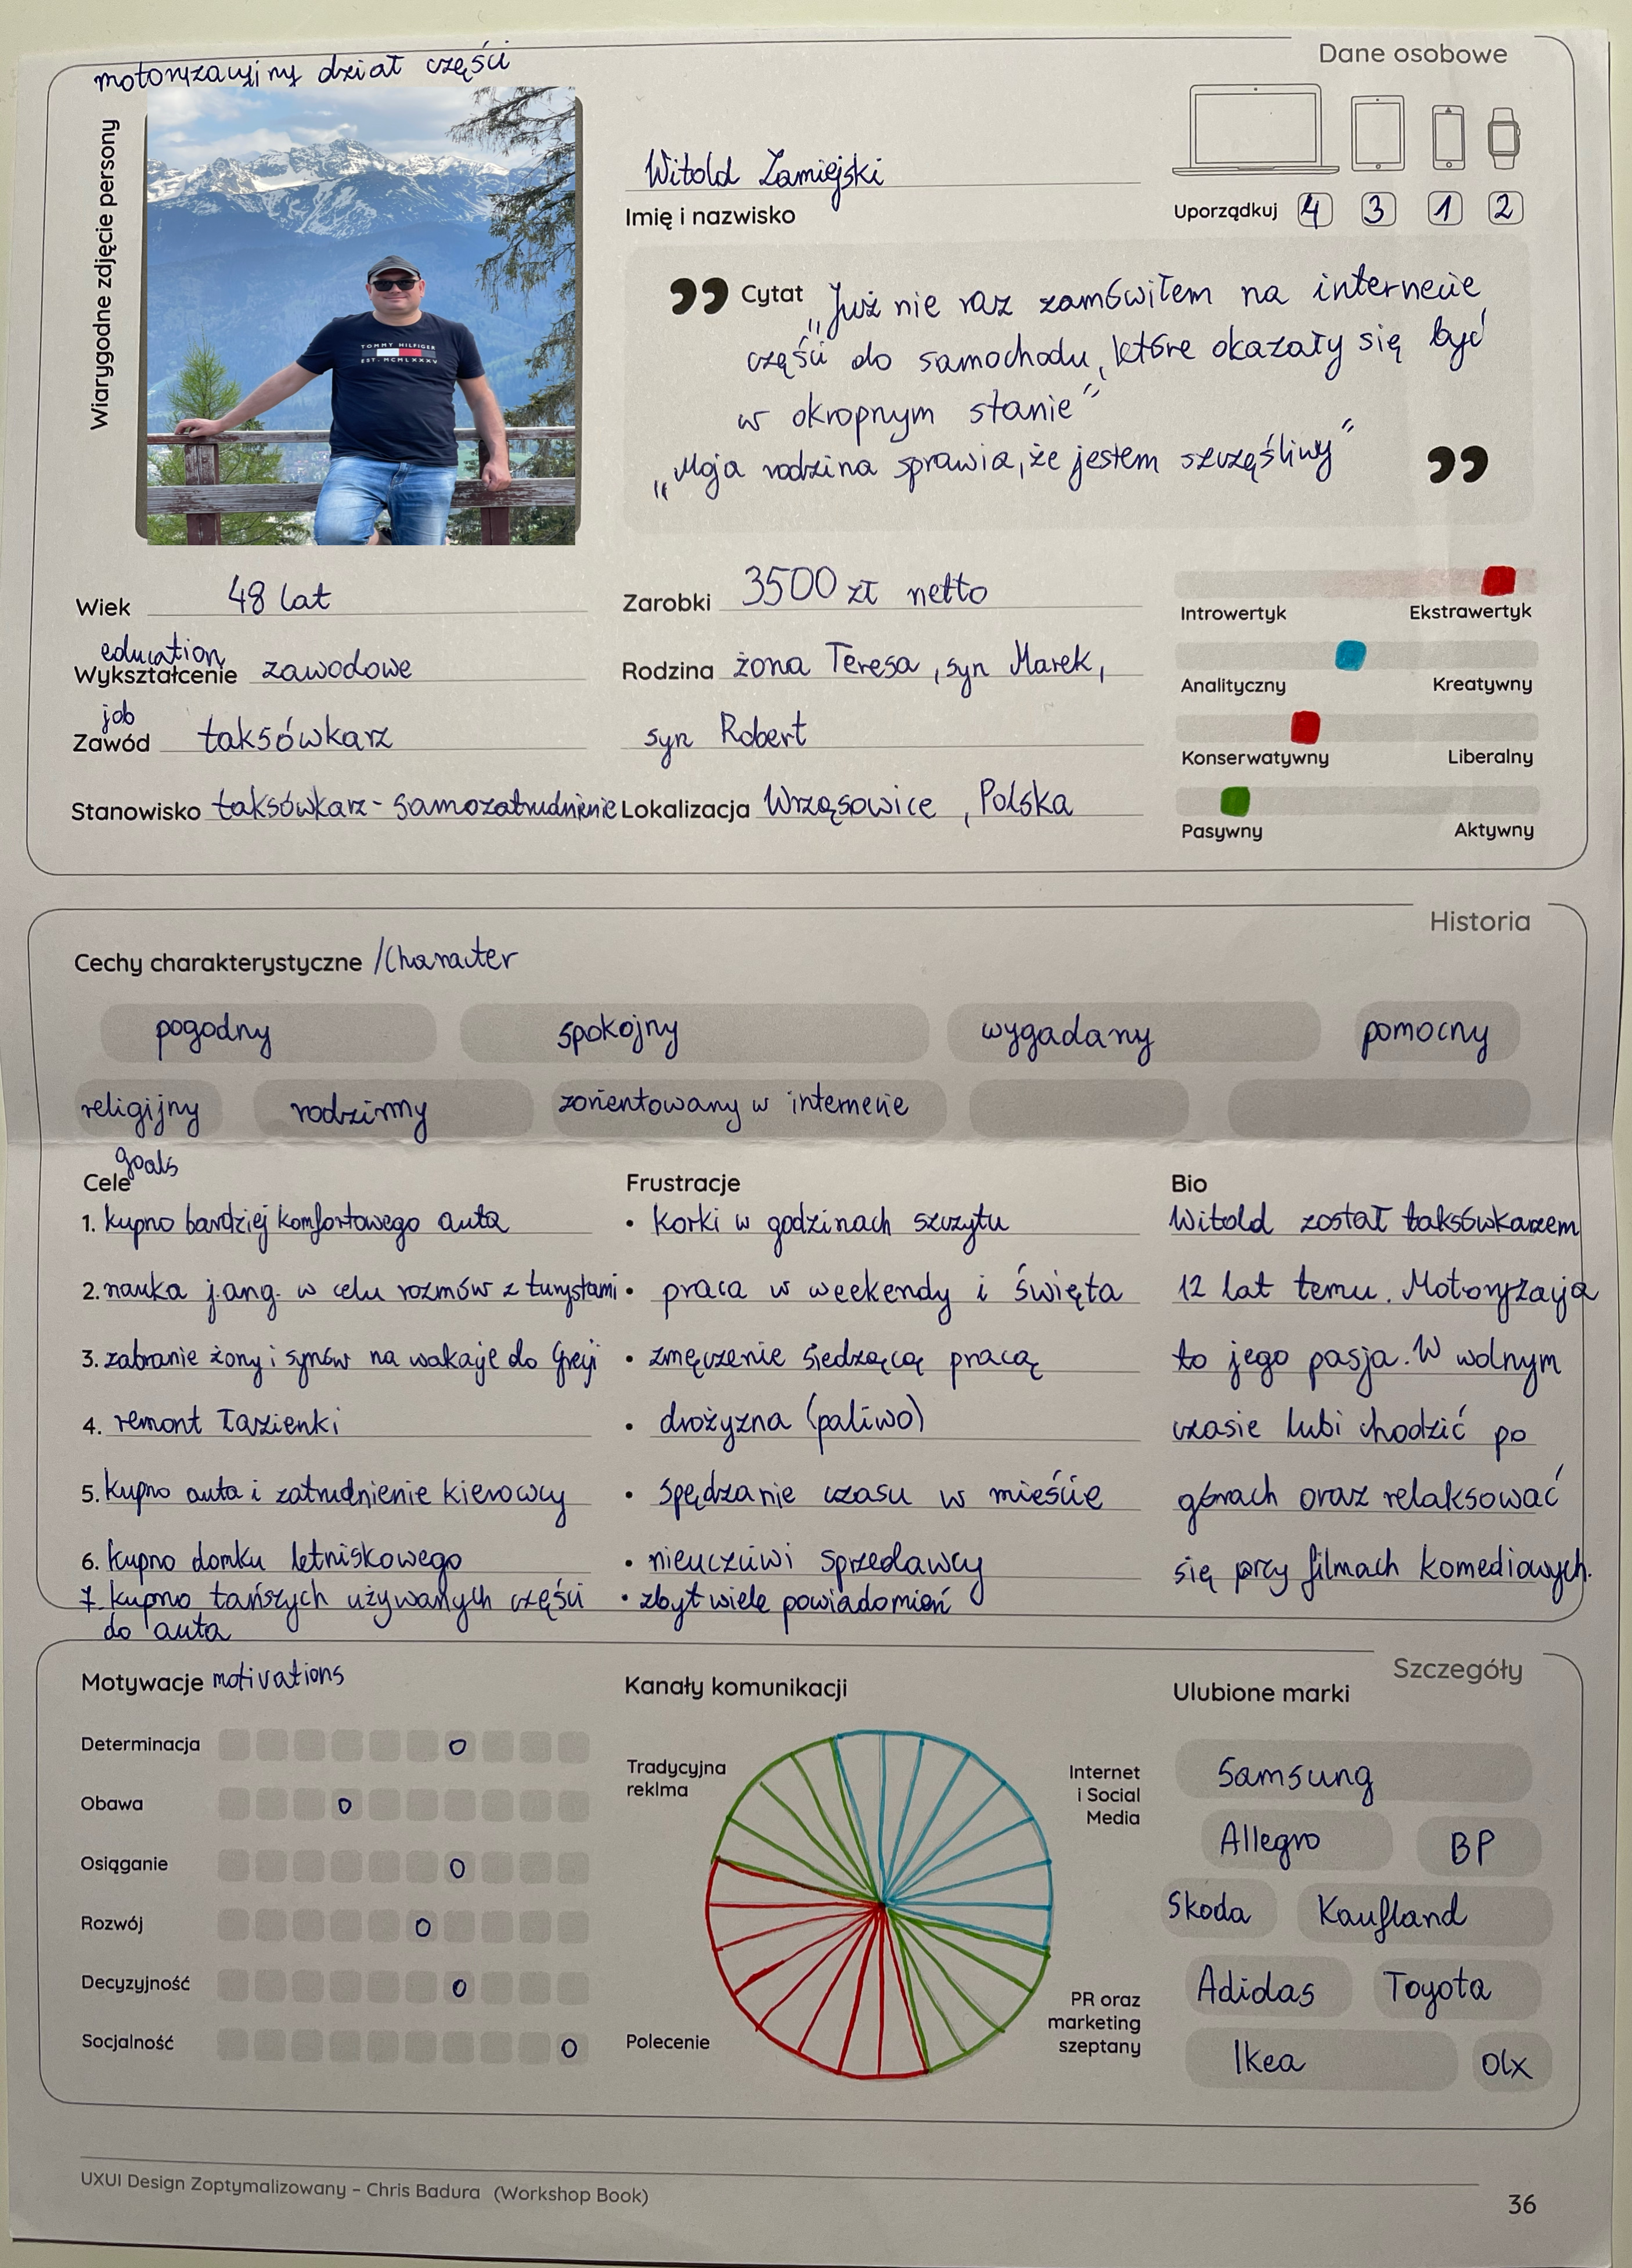 Dane osobowe
motoryzacyjny dział części
Wiarygodne zdjęcie persony
TOMMY HILFIGER
EST. MCMLXXXV
Witold Zamiejski
Imię i nazwisko
Uporządkuj 4 3 1 2
Cytat „Już nie raz zamówiłem na internecie
części do samochodu, które okazały się być
w okropnym stanie"
„Moja rodzina sprawia, że jestem szczęśliwy"
Wiek 48 lat
education
Wykształcenie zawodowe
job
Zawód taksówkarz
Stanowisko taksówkarz - samozatrudnienie
Zarobki 3500 zł netto
Rodzina żona Teresa, syn Marek,
syn Robert
Lokalizacja Wrząsowice, Polska
Introwertyk Ekstrawertyk
Analityczny Kreatywny
Konserwatywny Liberalny
Pasywny Aktywny
Historia
Cechy charakterystyczne /Character
pogodny spokojny wygadany pomocny
religijny rodzinny zorientowany w internecie
goals
Cele
1. kupno bardziej komfortowego auta
2. nauka j.ang. w celu rozmów z turystami
3. zabranie żony i synów na wakacje do Grecji
4. remont łazienki
5. kupno auta i zatrudnienie kierowcy
6. kupno domku letniskowego
7. kupno tańszych używanych części
do auta
Frustracje
• korki w godzinach szczytu
• praca w weekendy i święta
• zmęczenie siedzącą pracą
• drożyzna (paliwo)
• spędzanie czasu w mieście
• nieuczciwi sprzedawcy
• zbyt wiele powiadomień
Bio
Witold został taksówkarzem
12 lat temu. Motoryzacja
to jego pasja. W wolnym
czasie lubi chodzić po
górach oraz relaksować
się przy filmach komediowych.
Szczegóły
Motywacje motivations
Determinacja
Obawa
Osiąganie
Rozwój
Decyzyjność
Socjalność
Kanały komunikacji
Tradycyjna
reklma
Internet
i Social
Media
Polecenie
PR oraz
marketing
szeptany
Ulubione marki
Samsung
Allegro BP
Skoda Kaufland
Adidas Toyota
Ikea Olx
UXUI Design Zoptymalizowany – Chris Badura (Workshop Book)
36